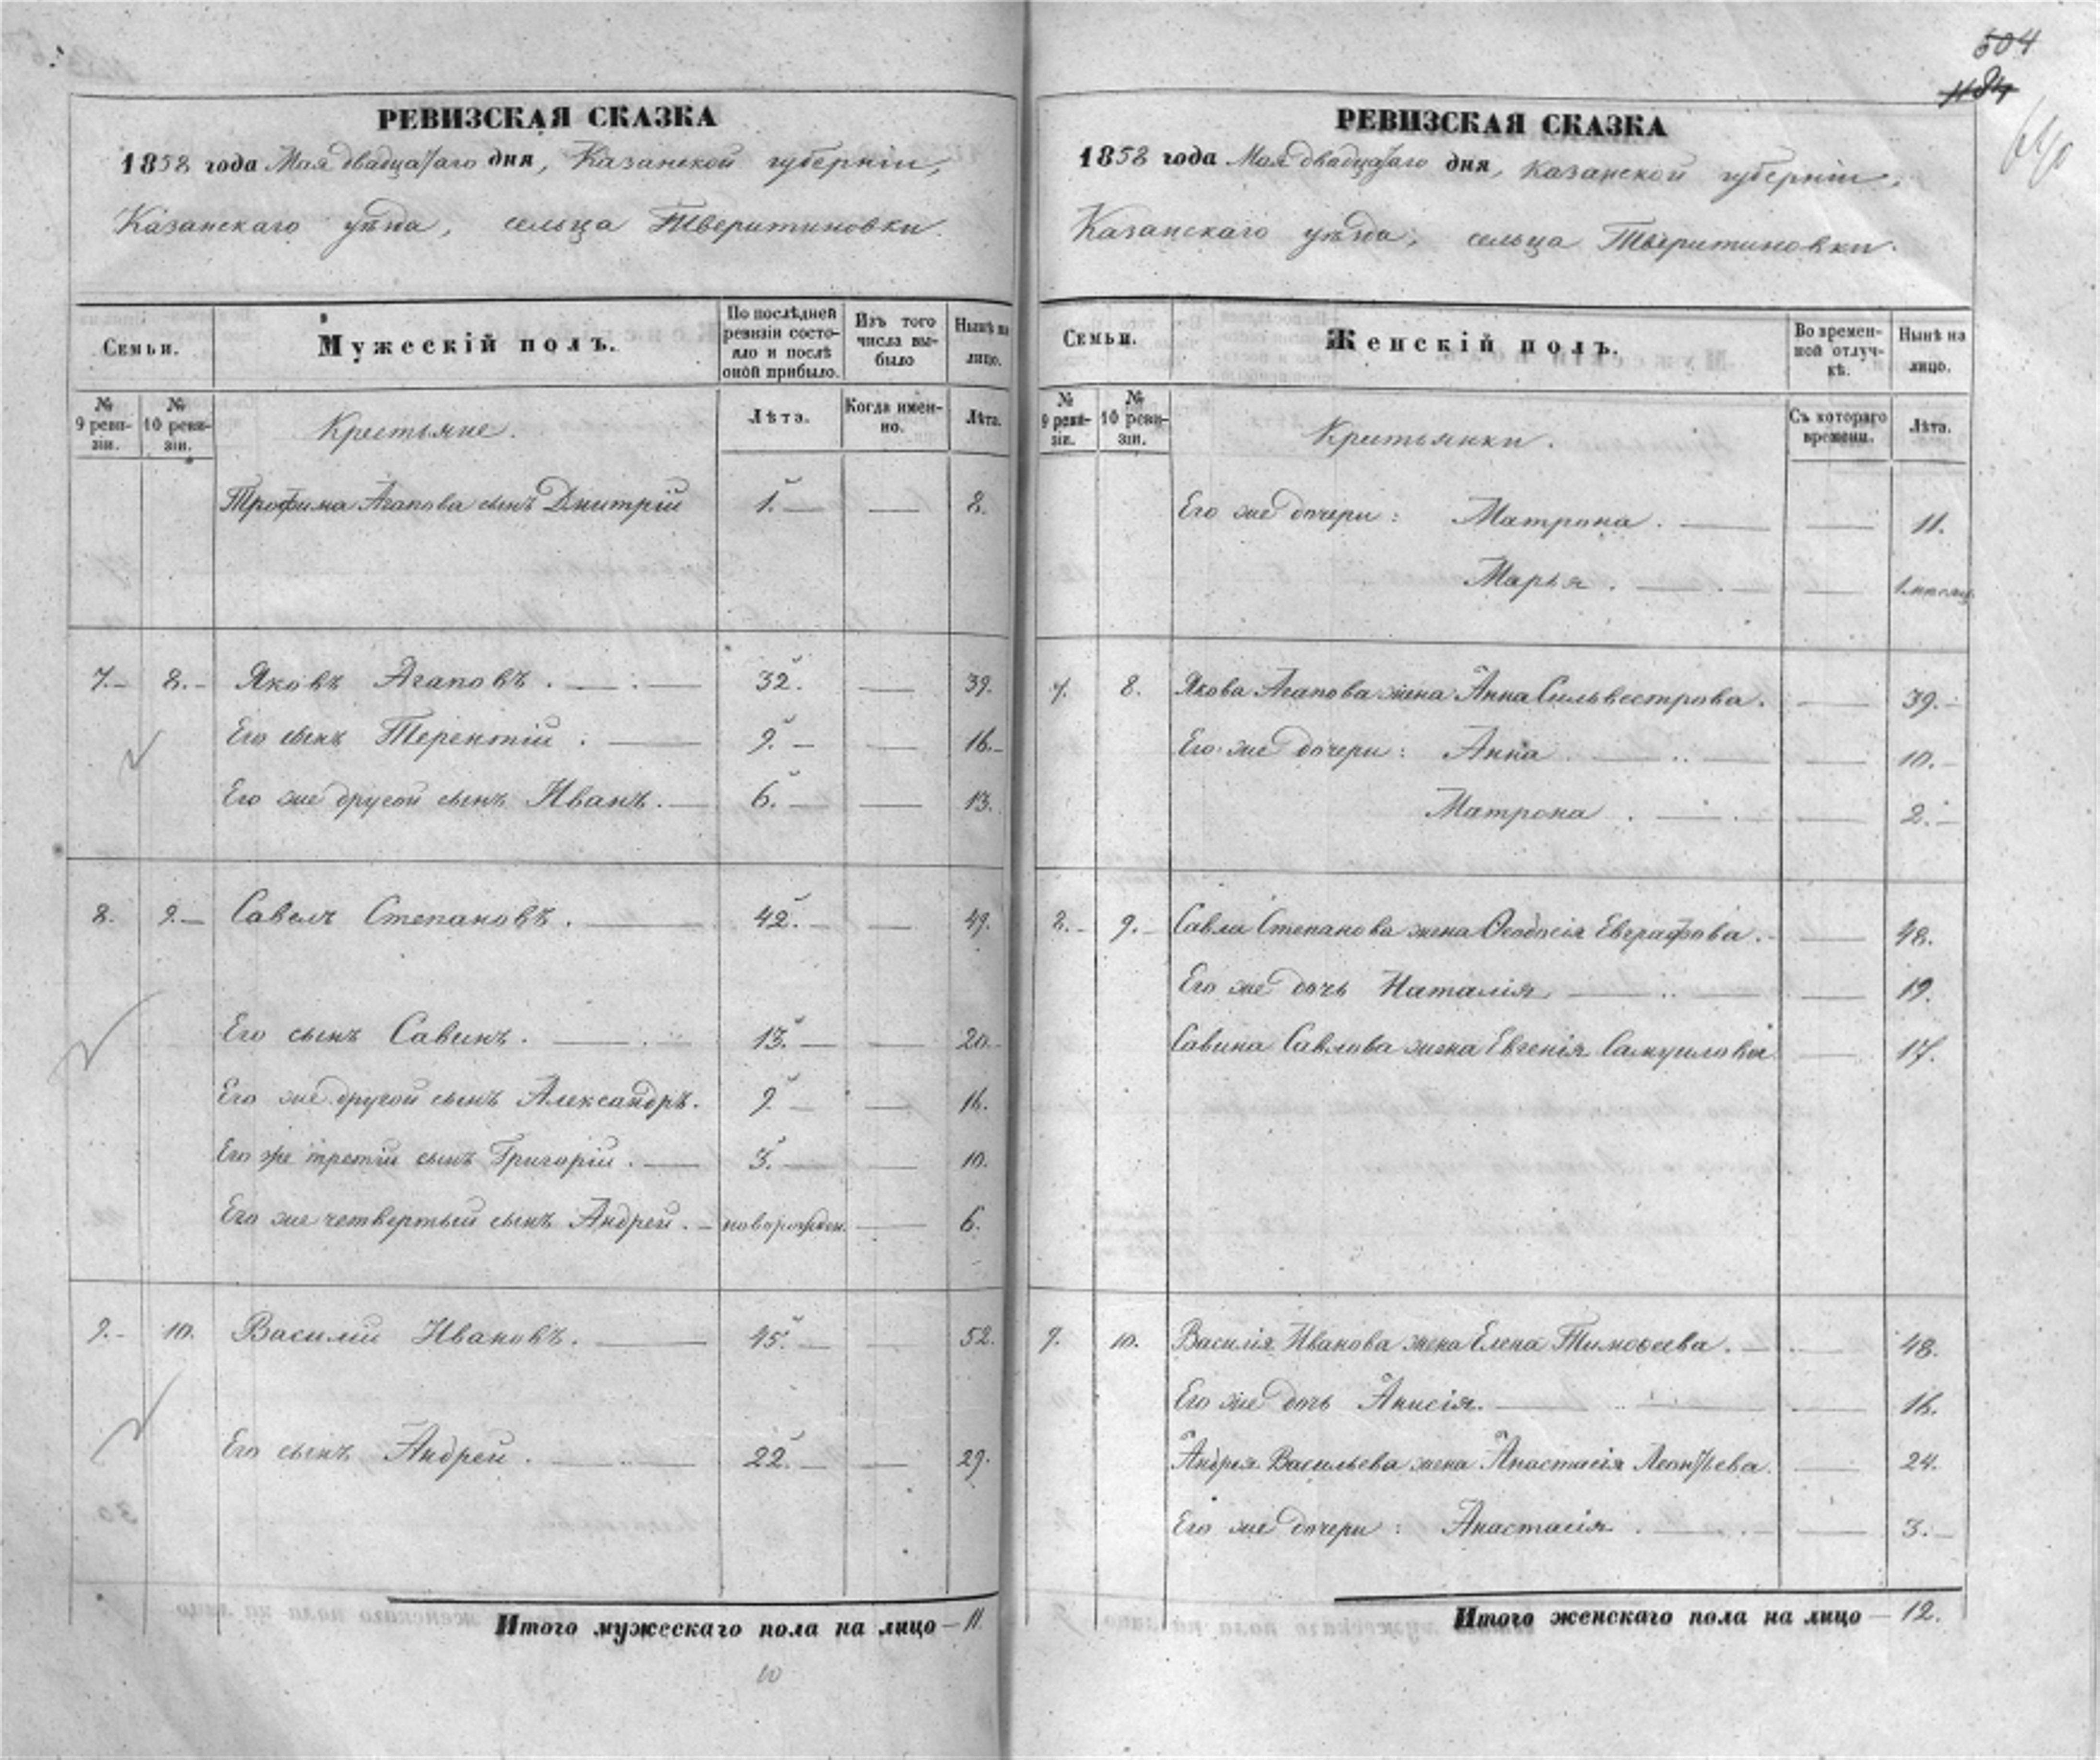 504
РЕВИЗСКАЯ СКАЗКА
1858 года Мая двадцатаго дня, Казанской губерніи,
Казанскаго уѣзда, сельца Тверитиновки.
Семьи.
Мужескій полъ.
По послѣдней ревизіи состояло и послѣ оной прибыло.
Изъ того числа выбыло
Нынѣ на лицо.
№ 9 ревизіи.
№ 10 ревизіи.
Крестьяне.
Лѣта.
Когда именно.
Лѣта.
Трофима Агапова сынъ Дмитрій 1. — — 8.
7. — 8. — Яковъ Агаповъ. — 32. — 39.
Его сынъ Терентій. — 9. — — 16.
Его же другой сынъ Иванъ. — 6. — — 13.
8. 9. — Савелъ Степановъ. — 42. — — 49.
Его сынъ Савинъ. — 13. — — 20.
Его же другой сынъ Александръ. 9. — — 16.
Его же третій сынъ Григорій. — 3. — — 10.
Его же четвертый сынъ Андрей. — новорожден. — 6.
9. — 10. Василій Ивановъ. — 45. — — 52.
Его сынъ Андрей. — 22. — — 29.
Итого мужескаго пола на лицо — 11.
10
РЕВИЗСКАЯ СКАЗКА
1858 года Мая двадцатаго дня, Казанской губерніи,
Казанскаго уѣзда, сельца Тверитиновки.
Семьи.
Женскій полъ.
Во временной отлучкѣ.
Нынѣ на лицо.
№ 9 ревизіи.
№ 10 ревизіи.
Крестьянки.
Съ котораго времени.
Лѣта.
Его же дочери: Матрона. — — 11.
Марья. — —
7. 8. Якова Агапова жена Анна Сильвестрова. — 39.
Его же дочери: Анна — — 10.
Матрона. — — 2.
8. — 9. — Савла Степанова жена Ѳеодосія Евграфова. — 48.
Его же дочь Наталія — — 19.
Савина Савлова жена Евгенія Самуилова — 17.
9. 10. Василія Иванова жена Елена Тимоѳеева. — 48.
Его же дочь Анисія. — — 16.
Андрея Васильева жена Анастасія Леонтьева. — 24.
Его же дочери: Анастасія. — — 3.
Итого женскаго пола на лицо — 12.